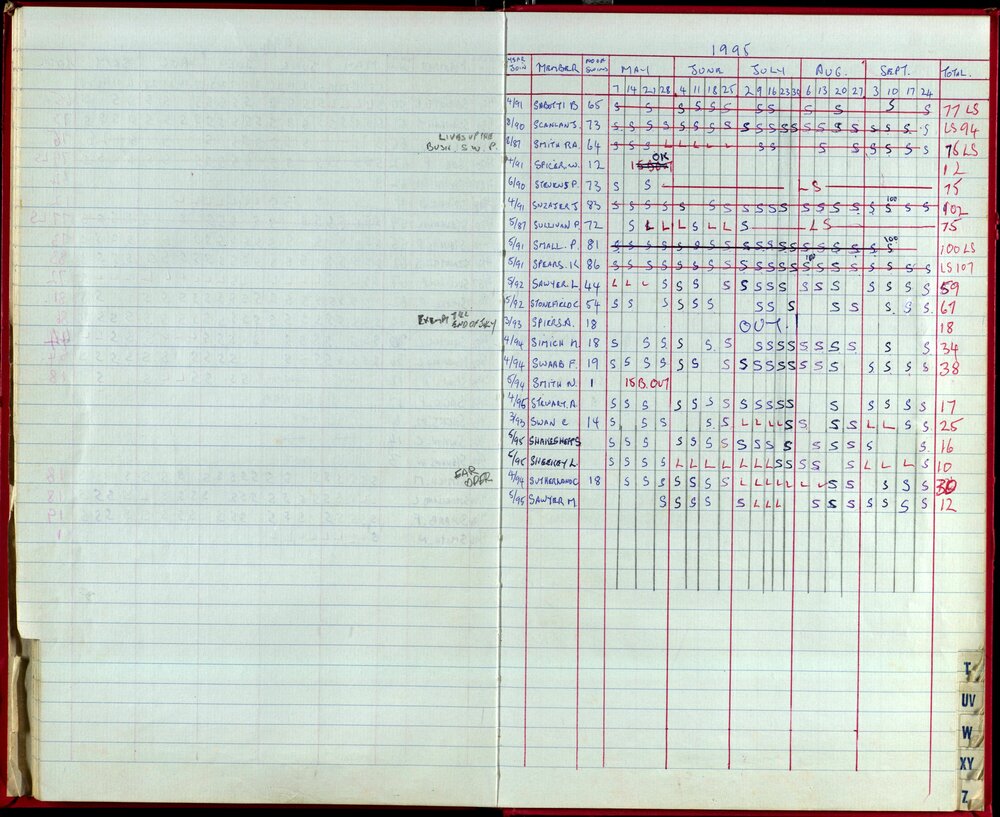 1995
YEAR JOIN MEMBER NO OF SWIMS MAY JUNE JULY AUG. SEPT. TOTAL.
7 14 21 28 4 11 18 25 2 9 16 23 30 6 13 20 27 3 10 17 24
4/91 SABOTTI B 65 S S S S S S S S S S S S 77 LS
8/90 SCANLAN J. 73 S S S S S S S S S S S S S S S S S S S S S LS 94
LIVES UP THE
BUSH, S.W.P.
8/87 SMITH RA. 64 S S S L L L L L S S S S S S S S 76 LS
OK
SPICER W. 12 12
6/90 STEVENS P. 73 S S L S 75
4/91 SUZATER J 83 S S S S S S S S S S S S S S S S S S S S 102
100
5/87 SULLIVAN P. 72 S L L L S L L S L S 75
5/91 SMALL. P. 81 S S S S S S S S S S S S S S S S S S S 100 LS
100
5/91 SPEARS. K 86 S S S S S S S S S S S S S S S S S S S S S LS 107
100
5/92 SAWYER. L. 44 L L L S S S S S S S S S S S S S S 59
5/92 STONEFIELD C. 54 S S S S S S S S S S S S S 67
EXEMPT TILL
END OF JULY
3/93 SPIRRS A. 18 OUT! 18
4/94 SIMICH N. 18 S S S S S S S S S S S S S S S S 34
4/94 SWAAB F. 19 S S S S S S S S S S S S S S S S S S S 38
5/94 SMITH N. 1 15 B. OUT
4/95 STEWART. A S S S S S S S S S S S S S S S S S 17
3/93 SWAN C 14 S S S S S L L L L S S S S L L S S 25
5/95 SHAKESHEFT S S S S S S S S S S S S S S S S 16
5/95 SHEEKEY L. S S S S L L L L L L L S S S S S L L L S 10
EAR
OPER
4/94 SUTHERLAND C 18 S S S S S S S L L L L L L S S S S S 30
5/95 SAWYER M S S S S S L L L S S S S S S S 12
T
UV
W
XY
Z